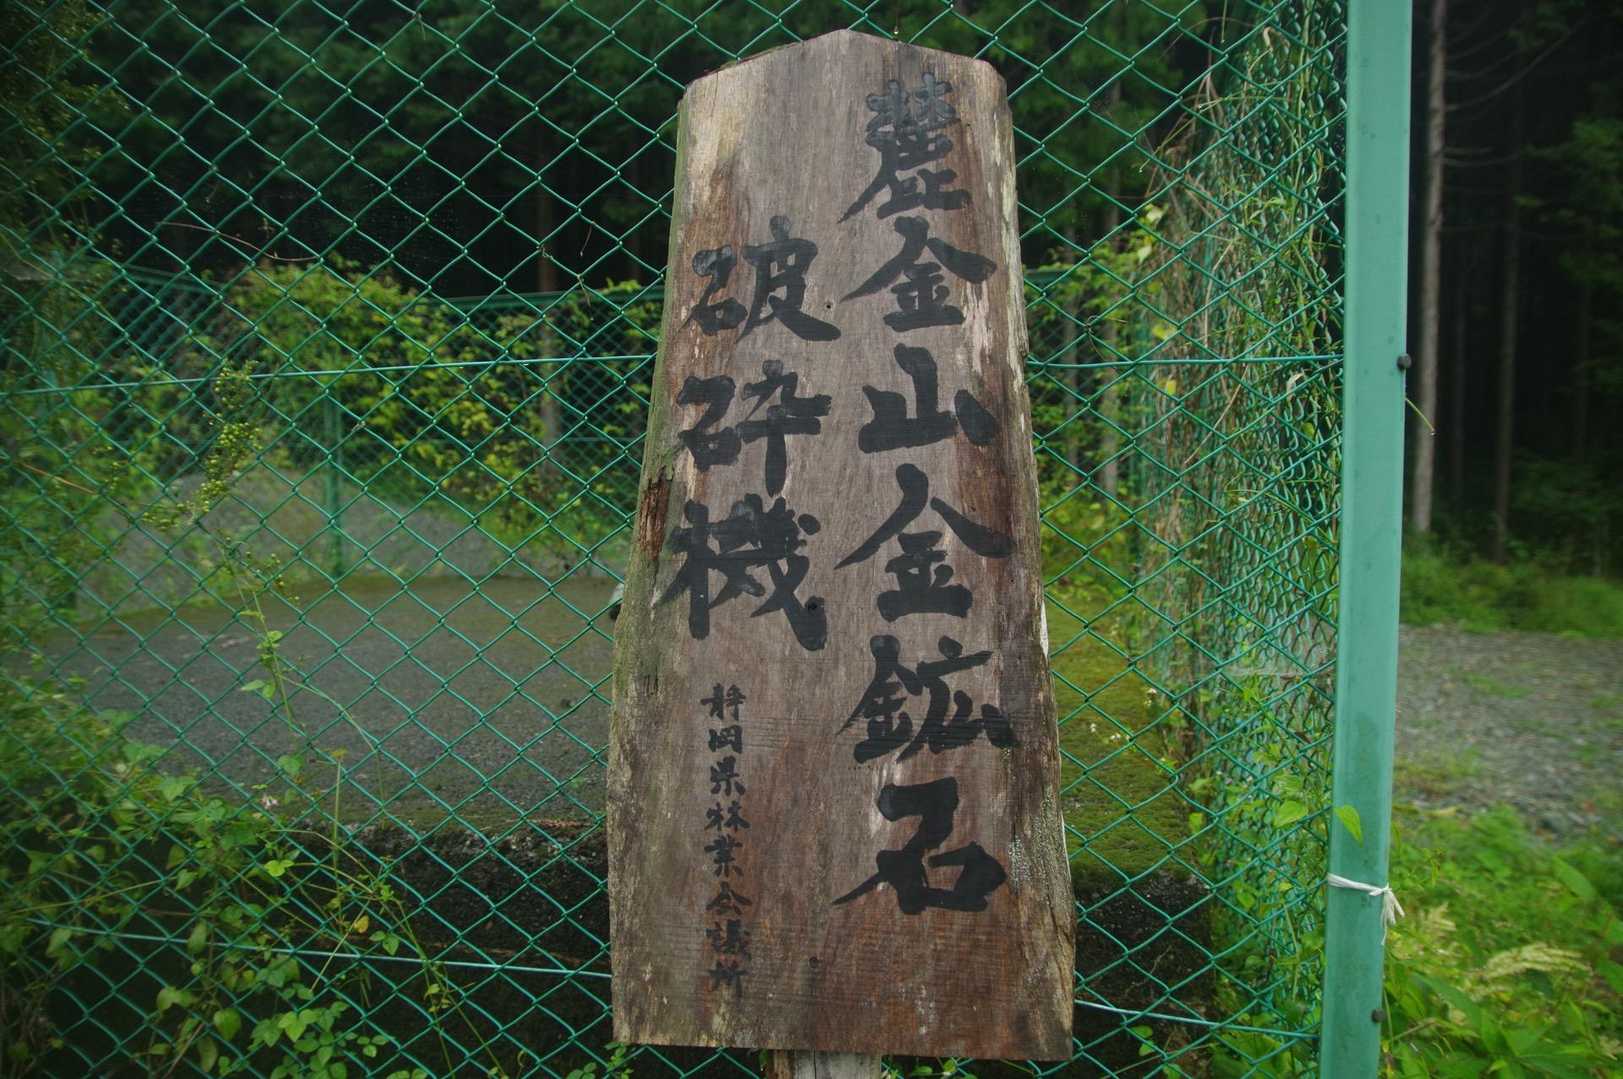 麓金山金鉱石
破砕機
静岡県林業会議所